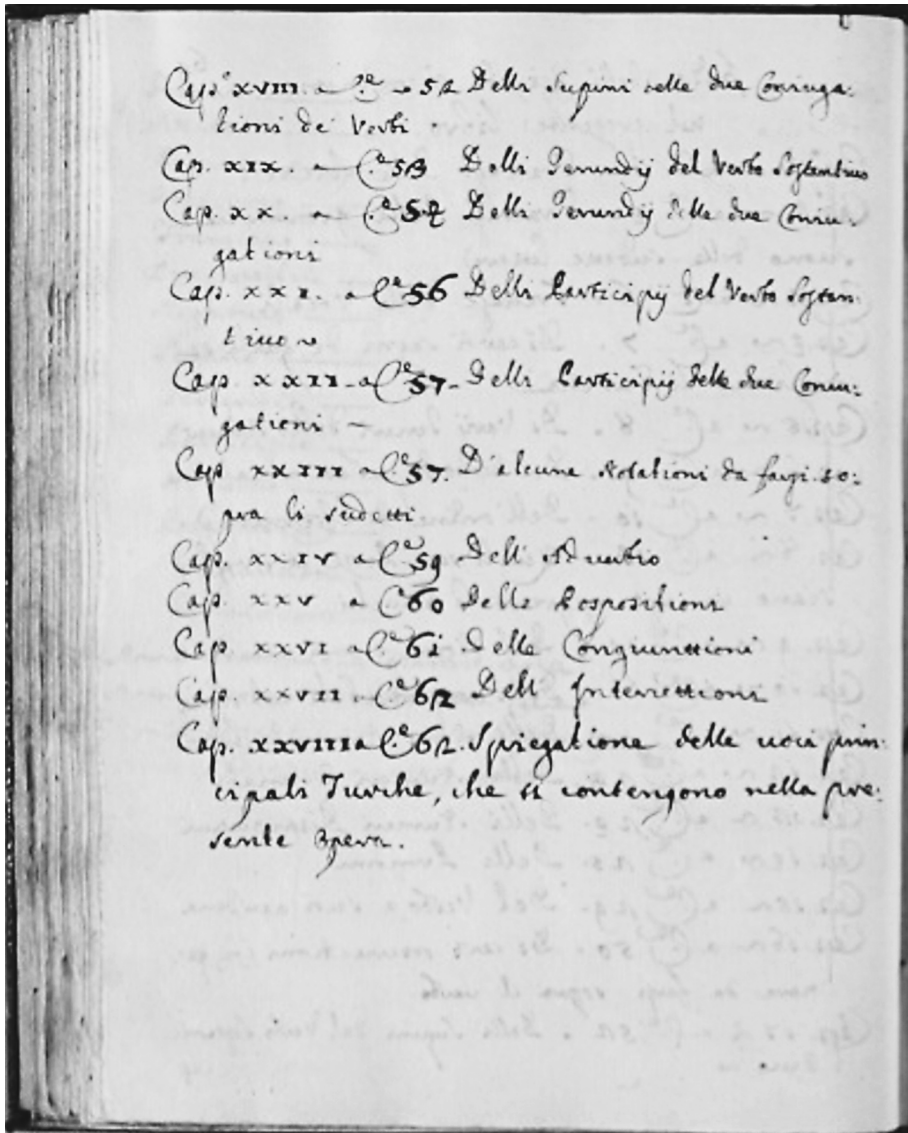 Cap.º XVIII. a C.e a 52 Delli Supini delle due Coniuga:
tioni de Verbi
Cap. XIX. a C.e 53 Delli Gerundij del Verbo Sostantiuo
Cap. XX. a C.e 54 Delli Gerundij delle due Coniu:
gationi
Cap. XXI. a C.e 56 Delli Participij del Verbo Sostan:
tiuo
Cap. XXII. a C.e 57. Delli Participij delle due Coniu:
gationi
Cap. XXIII a C.e 57. D'alcune Notationi da farsi so:
pra li sudetti
Cap. XXIV a C.e 59 Dell Aduerbio
Cap. XXV a C.e 60 Delle Pospositioni
Cap. XXVI a C.e 61. Delle Congiuntioni
Cap. XXVII a C.e 62 Dell Interiettioni
Cap. XXVIII a C.e 62. Spiegatione delle uoci prin:
cipali Turche, che si contengono nella pre:
sente Opera.